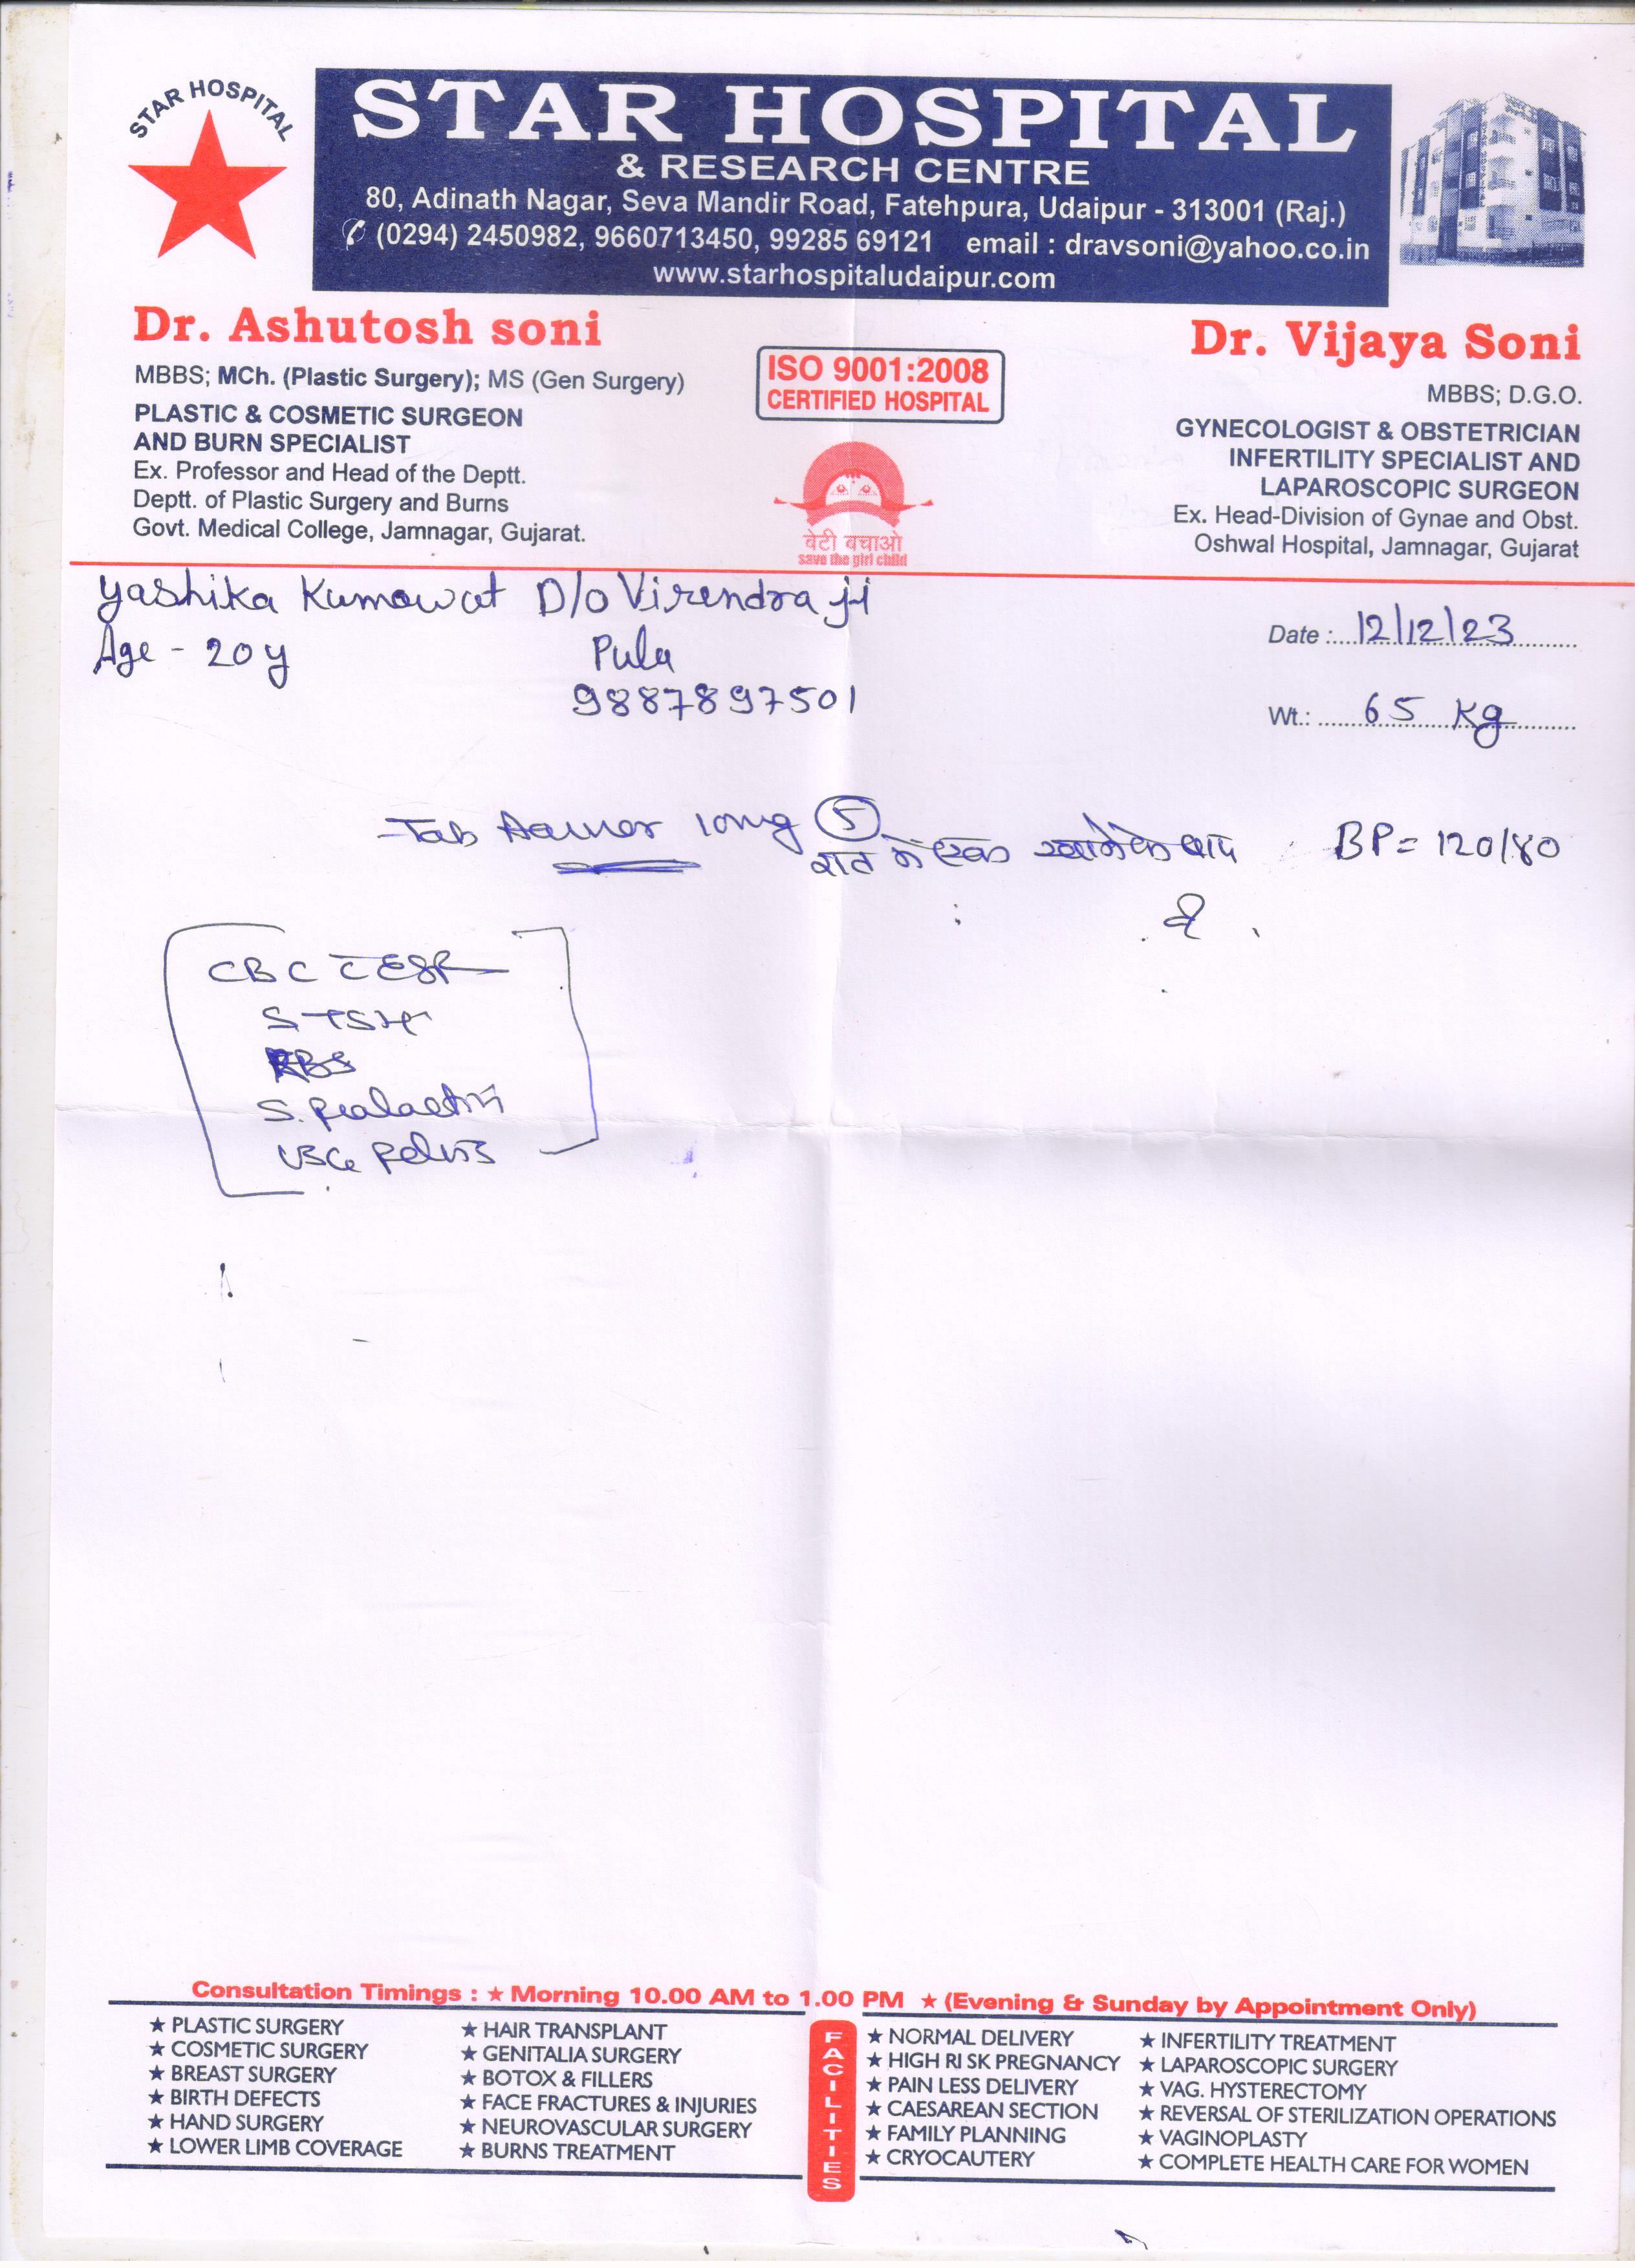 STAR HOSPITAL
STAR HOSPITAL
& RESEARCH CENTRE
80, Adinath Nagar, Seva Mandir Road, Fatehpura, Udaipur - 313001 (Raj.)
(0294) 2450982, 9660713450, 99285 69121 email : dravsoni@yahoo.co.in
www.starhospitaludaipur.com
Dr. Ashutosh soni
MBBS; MCh. (Plastic Surgery); MS (Gen Surgery)
PLASTIC & COSMETIC SURGEON
AND BURN SPECIALIST
Ex. Professor and Head of the Deptt.
Deptt. of Plastic Surgery and Burns
Govt. Medical College, Jamnagar, Gujarat.
ISO 9001:2008
CERTIFIED HOSPITAL
बेटी बचाओ
save the girl child
Dr. Vijaya Soni
MBBS; D.G.O.
GYNECOLOGIST & OBSTETRICIAN
INFERTILITY SPECIALIST AND
LAPAROSCOPIC SURGEON
Ex. Head-Division of Gynae and Obst.
Oshwal Hospital, Jamnagar, Gujarat
Yashika Kumawat D/o Virendra ji
Age - 20 y Pula
9887897501
Date : 12/12/23
Wt.: 65 Kg
Tab 10mg 5
रात में एक खाने के बाद
BP = 120/80
CBC C ESR
S TSH
RBS
S. Prolactin
USG Pelvis
Consultation Timings : ★ Morning 10.00 AM to 1.00 PM ★ (Evening & Sunday by Appointment Only)
★ PLASTIC SURGERY
★ COSMETIC SURGERY
★ BREAST SURGERY
★ BIRTH DEFECTS
★ HAND SURGERY
★ LOWER LIMB COVERAGE
★ HAIR TRANSPLANT
★ GENITALIA SURGERY
★ BOTOX & FILLERS
★ FACE FRACTURES & INJURIES
★ NEUROVASCULAR SURGERY
★ BURNS TREATMENT
FACILITIES
★ NORMAL DELIVERY
★ HIGH RI SK PREGNANCY
★ PAIN LESS DELIVERY
★ CAESAREAN SECTION
★ FAMILY PLANNING
★ CRYOCAUTERY
★ INFERTILITY TREATMENT
★ LAPAROSCOPIC SURGERY
★ VAG. HYSTERECTOMY
★ REVERSAL OF STERILIZATION OPERATIONS
★ VAGINOPLASTY
★ COMPLETE HEALTH CARE FOR WOMEN